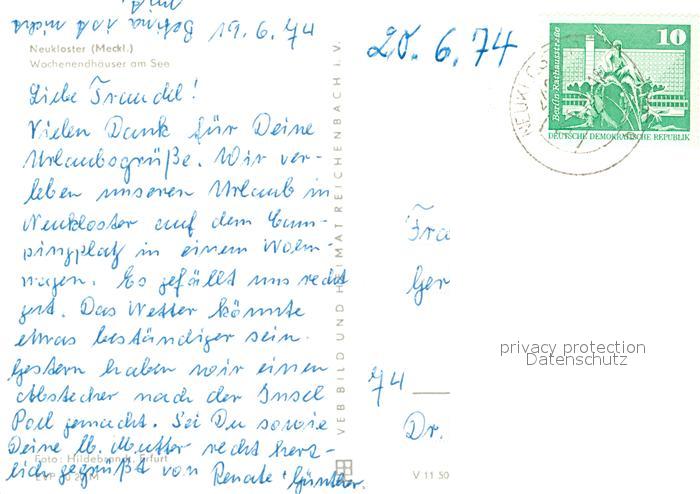 Betina ist nicht
19.6.74
Neukloster (Meckl.)
Wochenendhäuser am See
Liebe Traudel!
Vielen Dank für Deine
Urlaubsgrüße. Wir ver-
leben unseren Urlaub in
Neukloster auf dem Cam-
pingplatz in einem Wohn-
wagen. Es gefällt uns recht
gut. Das Wetter könnte
etwas beständiger sein.
Gestern haben wir einen
Abstecher nach der Insel
Poel gemacht. Sei Du sowie
Deine lb. Mutter recht herz-
lich gegrüßt von Renate + Günther.
Foto: Hildebrandt, Erfurt
VEB BILD UND HEIMAT REICHENBACH I. V.
20.6.74
10
Berlin · Rathausstraße
DEUTSCHE DEMOKRATISCHE REPUBLIK
Fra
Ger
privacy protection
Datenschutz
74
Dr.
V 11 50